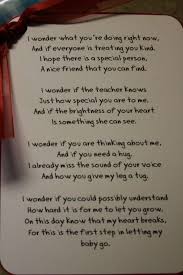 I wonder what you're doing right now,
And if everyone is treating you kind.
I hope there is a special person,
A nice friend that you can find.
I wonder if the teacher knows
Just how special you are to me.
And if the brightness of your heart
Is something she can see.
I wonder if you are thinking about me,
And if you need a hug.
I already miss the sound of your voice
And how you give my leg a tug.
I wonder if you could possibly understand
How hard it is for me to let you grow.
On this day know that my heart breaks,
For this is the first step in letting my
baby go.